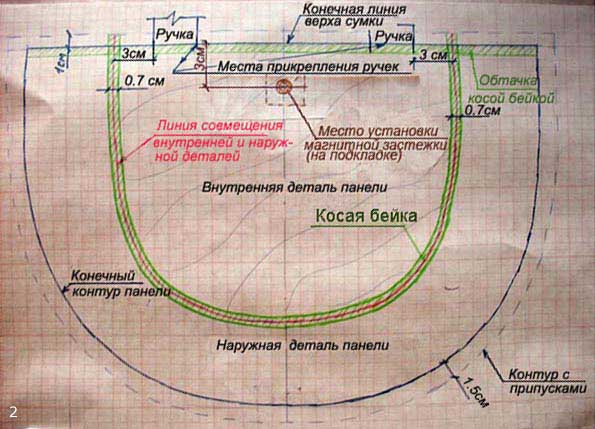 Конечная линия
верха сумки
Ручка
Ручка
1см
3см
3см
3 см
Места прикрепления ручек
0.7 см
Обтачка
косой бейкой
0.7см
Линия совмещения
внутренней и наруж-
ной деталей
Место установки
магнитной застежки
(на подкладке)
Внутренняя деталь панели
Косая бейка
Конечный
контур панели
Наружная деталь панели
Контур с
припусками
1.5см
2